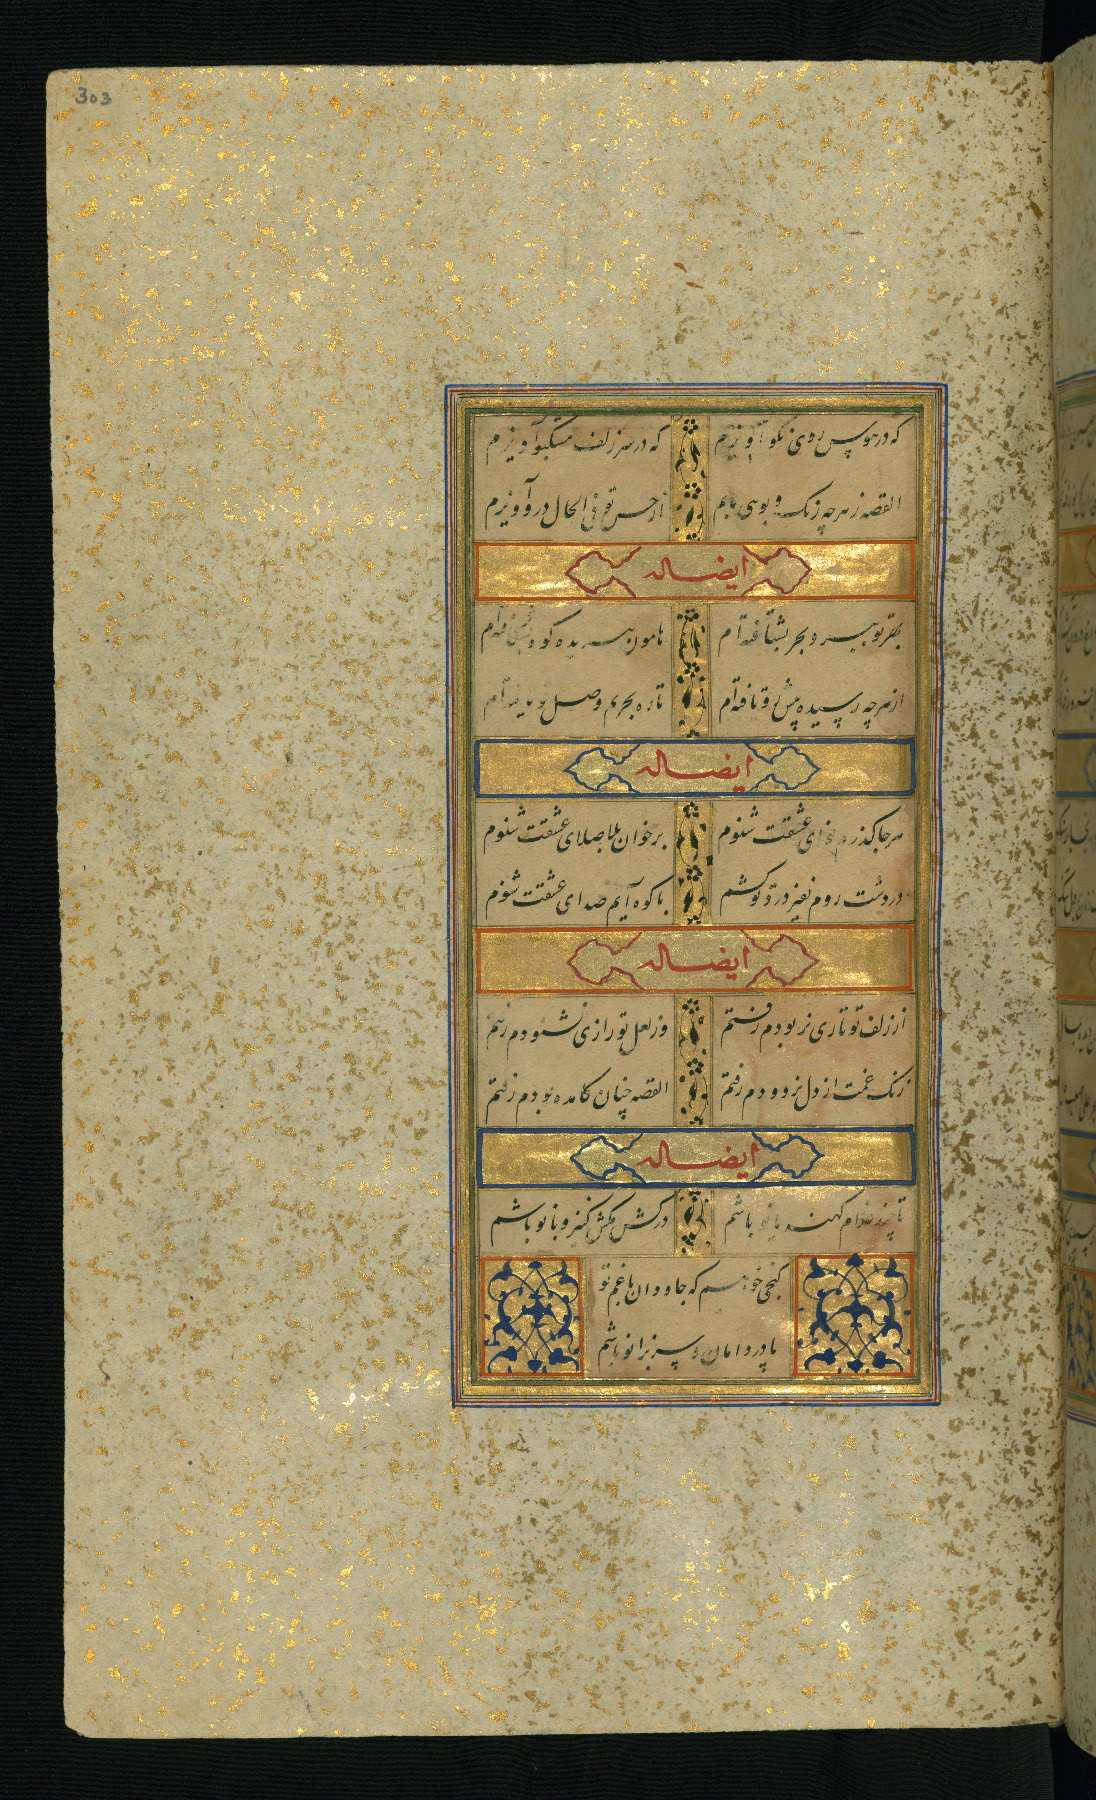 303
که در هوس روی نکو آویزم که در سر زلف مشکبو آویزم
القصه ز هرچه رنگ و بوی یابم از حسن تو فی الحال درو آویزم
ایضا له
بهر تو ببر و بحر بشتافته‌ام هامون ببریده کوه بشکافته‌ام
از هرچه رسیده پیش رو تافته‌ام تا ره بحریم وصل تو یافته‌ام
ایضا له
هر جا گذرم نوای عشقت شنوم بر خوان بلا صلای عشقت شنوم
در دشت روم نفیر درد تو کشم با کوه آیم صدای عشقت شنوم
ایضا له
از زلف تو تاری نربودم رفتم وز لعل تو رازی نشنودم رفتم
زنگ غمت از دل نزدودم رفتم القصه چنان کامده بودم رفتم
ایضا له
تا چند غلام کهنه یا نو باشم در کش مکش کنیز و بانو باشم
کنجی خواهم که جاودان با غم تو
پا در دامان و سر بزانو باشم